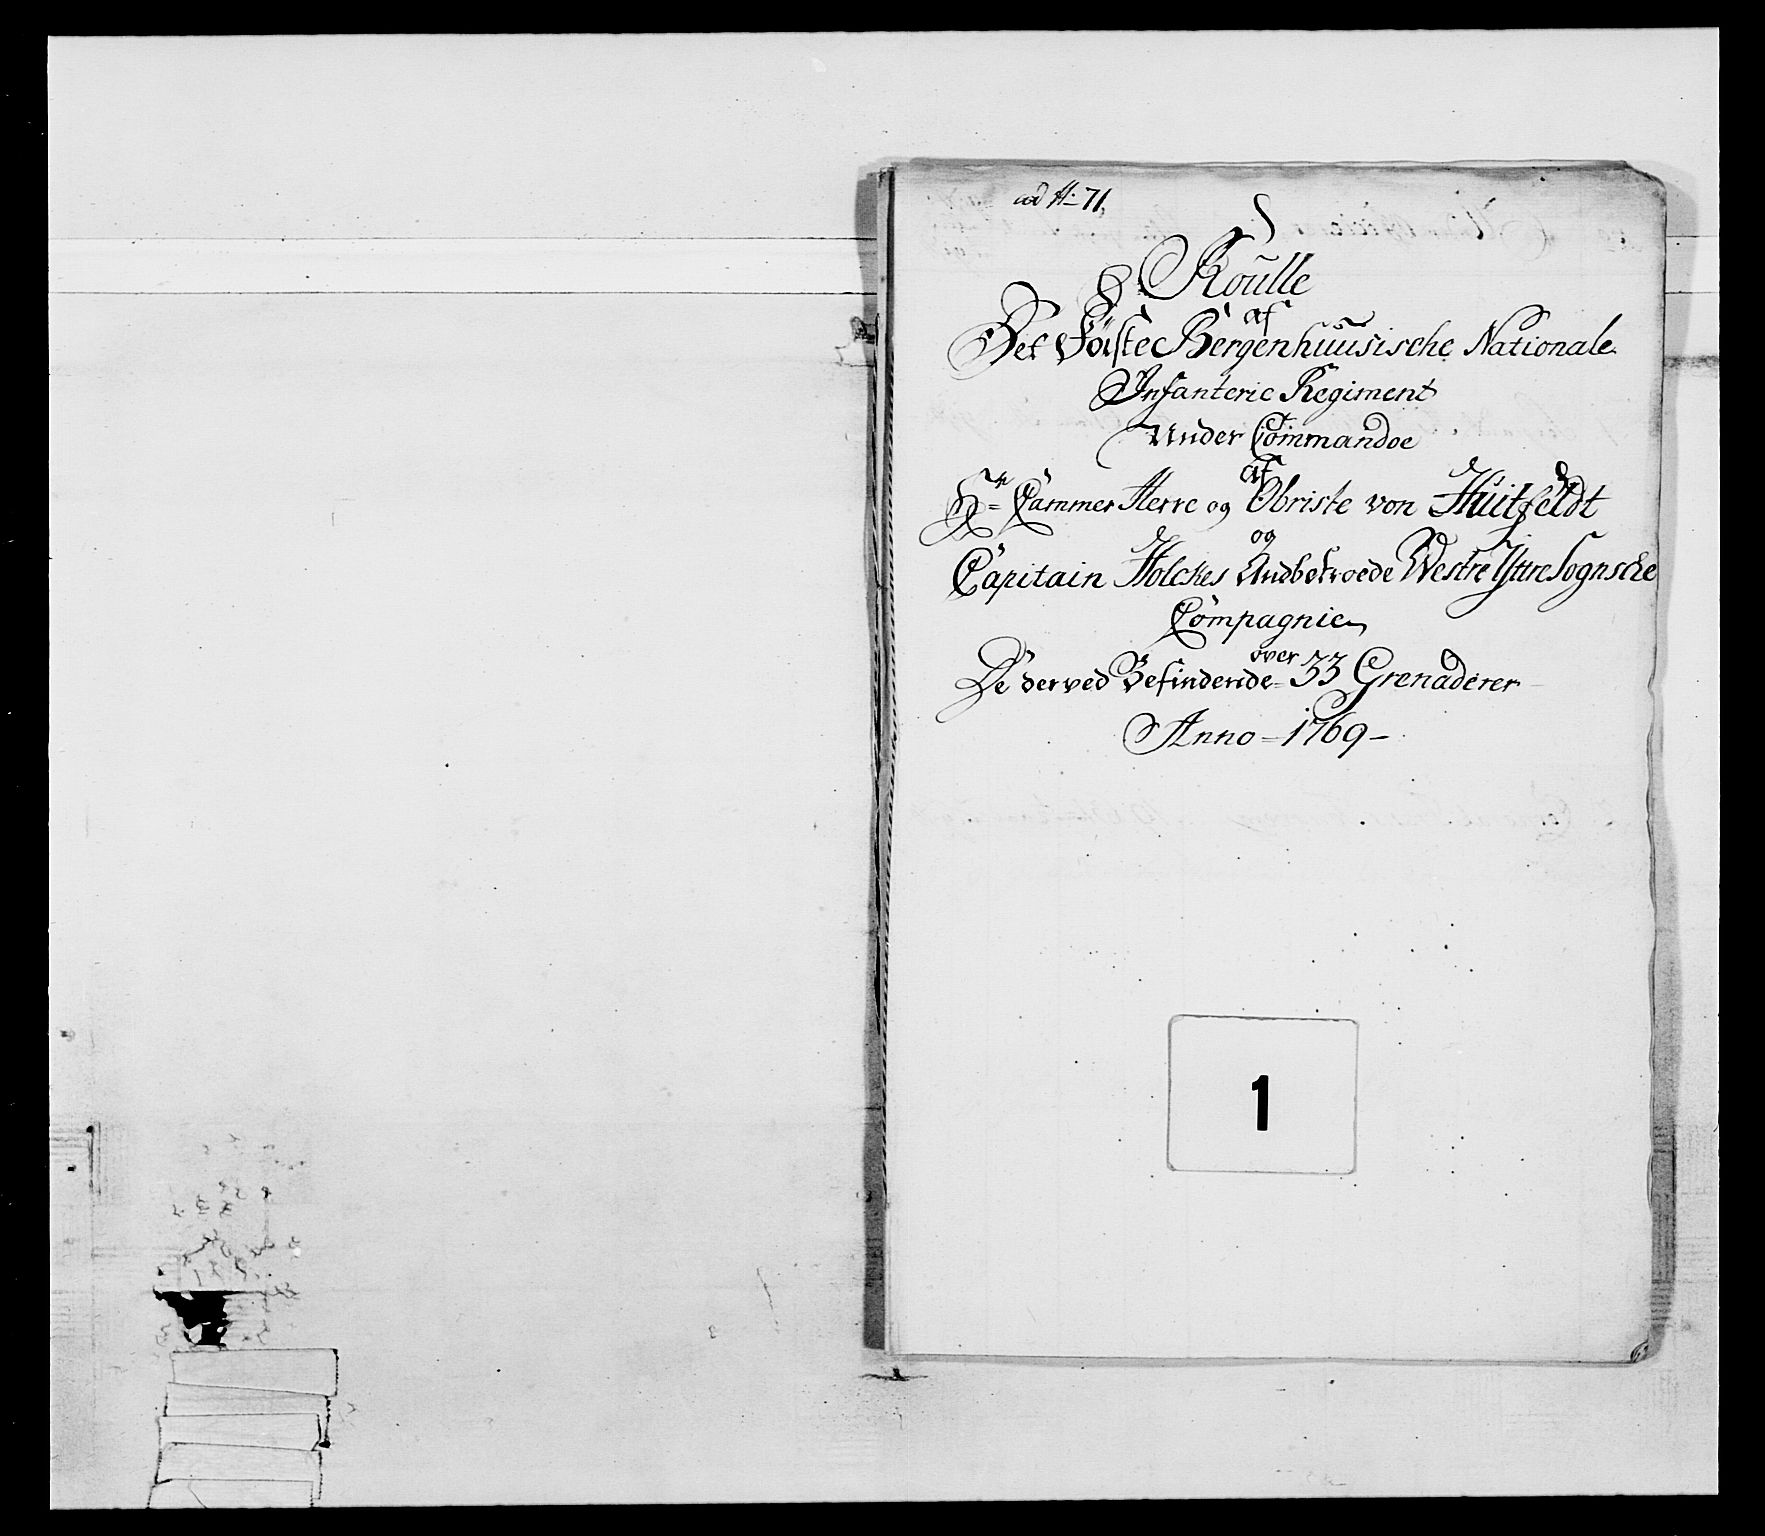 ad N: 71.
Roulle
af
Det Förste Bergenhuusische Nationale
Infanterie Regiment
Under Commandoe
af
Hr. Cammer Herre og Obriste von Huitfeldt
og
Capitain Holckes Andbetroede Westre Yttre Sognsche
Compagnie
over
De derved Befindende 33 Grenaderer
Anno - 1769 -
1